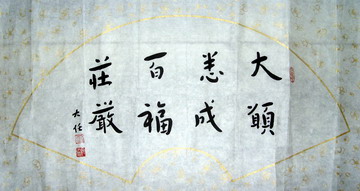 大願
悉成
百福
莊嚴
大任